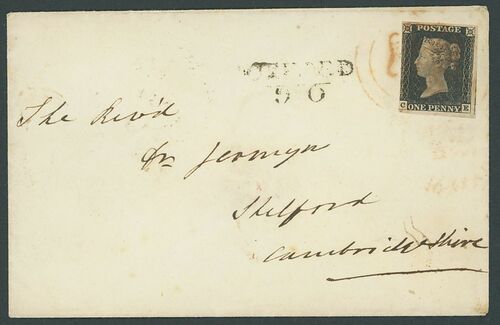 POSTAGE
C E
ONE PENNY
90
The Rev'd
Dr Jermyn
Shelford
Cambridgeshire